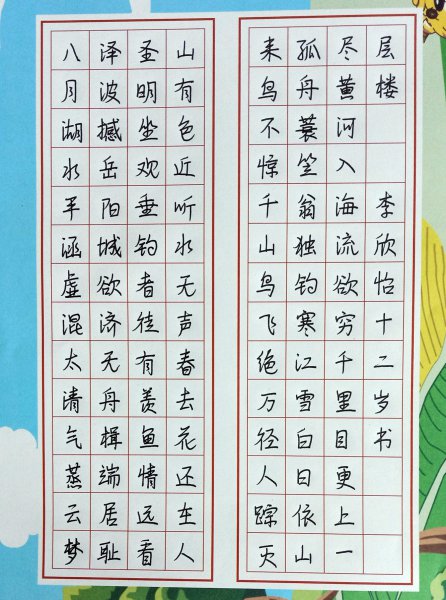 八月湖水平涵虚混太清气蒸云梦
泽波撼岳阳城欲济无舟楫端居耻
圣明坐观垂钓者徒有羡鱼情远看
山有色近听水无声春去花还在人
来鸟不惊千山鸟飞绝万径人踪灭
孤舟蓑笠翁独钓寒江雪白日依山
尽黄河入海流欲穷千里目更上一
层楼 李欣怡十二岁书